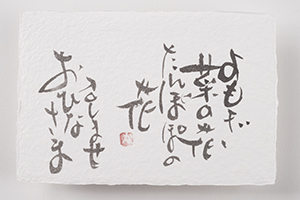 よもぎ
菜の花
たんぽぽの
花
召しませ
おひなさま